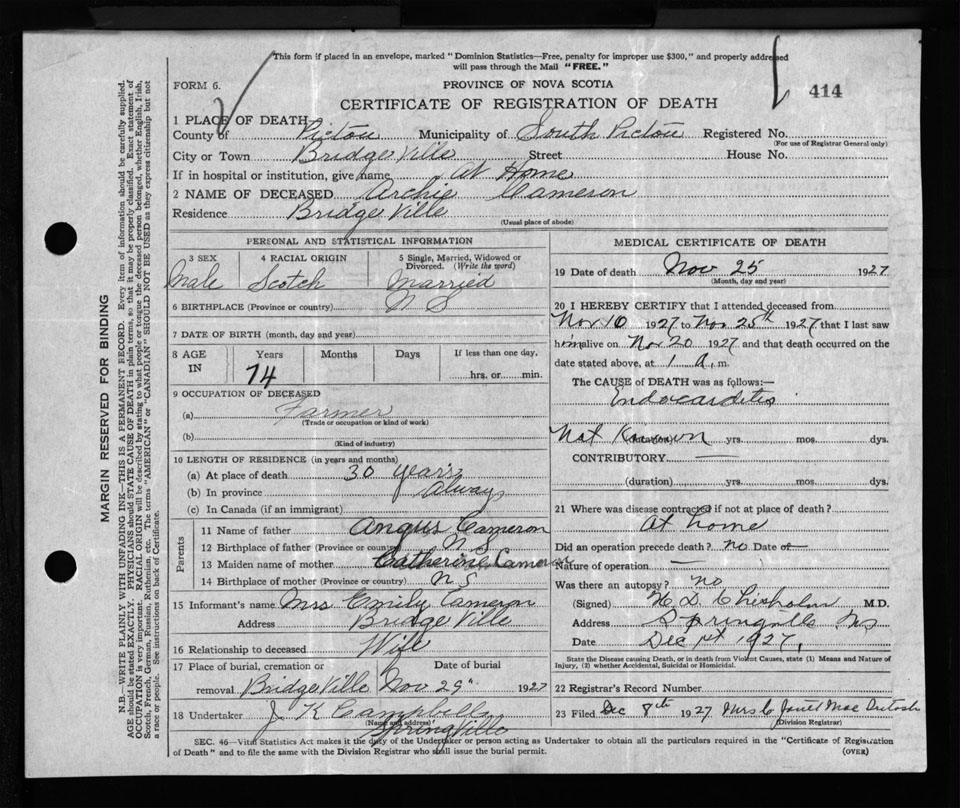 This form if placed in an envelope, marked "Dominion Statistics—Free, penalty for improper use $300," and properly addressed
will pass through the Mail "FREE."
FORM 6.
PROVINCE OF NOVA SCOTIA
CERTIFICATE OF REGISTRATION OF DEATH
414
1 PLACE OF DEATH
County of Pictou Municipality of South Pictou Registered No.
(For use of Registrar General only)
City or Town Bridgeville Street House No.
If in hospital or institution, give name At Home
2 NAME OF DECEASED Archie Cameron
Residence Bridgeville
(Usual place of abode)
PERSONAL AND STATISTICAL INFORMATION
3 SEX 4 RACIAL ORIGIN 5 Single, Married, Widowed or
Divorced. (Write the word)
Male Scotch Married
6 BIRTHPLACE (Province or country) N S
7 DATE OF BIRTH (month, day and year)
8 AGE IN Years Months Days If less than one day,
74 hrs. or min.
9 OCCUPATION OF DECEASED
(a) Farmer
(Trade or occupation or kind of work)
(b)
(Kind of industry)
10 LENGTH OF RESIDENCE (in years and months)
(a) At place of death 30 years
(b) In province Always
(c) In Canada (if an immigrant)
Parents
11 Name of father Angus Cameron
12 Birthplace of father (Province or country) N S
13 Maiden name of mother Catherine Cameron
14 Birthplace of mother (Province or country) N S
15 Informant's name Mrs Emily Cameron
Address Bridgeville
16 Relationship to deceased Wife
17 Place of burial, cremation or Date of burial
removal Bridgeville Nov 29" 1927
18 Undertaker J K Campbell
(Name and address)
Springville
MEDICAL CERTIFICATE OF DEATH
19 Date of death Nov 25 1927
(Month, day and year)
20 I HEREBY CERTIFY that I attended deceased from
Nov 10 1927 to Nov 25th 1927 that I last saw
him alive on Nov 20 1927 and that death occurred on the
date stated above, at 1 a.m.
The CAUSE of DEATH was as follows:—
Endocarditis
Not Known (duration) yrs. mos. dys.
CONTRIBUTORY —
(duration) yrs. mos. dys.
21 Where was disease contracted if not at place of death?
At home
Did an operation precede death? no Date of
Nature of operation —
Was there an autopsy? no
(Signed) H D Chisholm M.D.
Address Springville NS
Date Dec 1st 1927,
State the Disease causing Death, or in death from Violent Causes, state (1) Means and Nature of
Injury, (2) whether Accidental, Suicidal or Homicidal.
22 Registrar's Record Number
23 Filed Dec 8th 1927 Mrs C Janet MacIntosh
(Division Registrar)
SEC. 46—Vital Statistics Act makes it the duty of the Undertaker or person acting as Undertaker to obtain all the particulars required in the "Certificate of Registration
of Death" and to file the same with the Division Registrar who shall issue the burial permit.
(OVER)
MARGIN RESERVED FOR BINDING
N.B.—WRITE PLAINLY WITH UNFADING INK—THIS IS A PERMANENT RECORD. Every item of information should be carefully supplied.
AGE should be stated EXACTLY. PHYSICIANS should STATE CAUSE OF DEATH in plain terms, so that it may be properly classified. Exact statement of
OCCUPATION is very important. RACIAL ORIGIN will be described by stating to what people or tongue the deceased person belonged, whether English, Irish,
Scotch, French, German, Russian, Ruthenian, etc. The terms "AMERICAN" or "CANADIAN" SHOULD NOT BE USED as they express citizenship but not
a race or people. See instructions on back of Certificate.